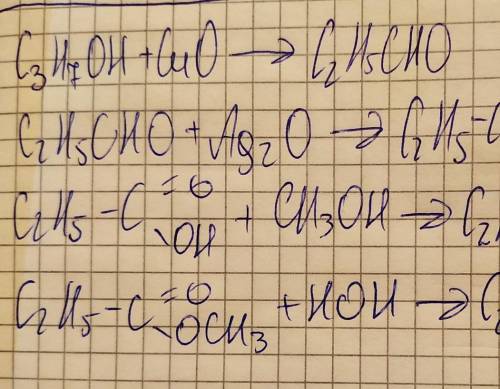 C₃H₇OH + CuO → C₂H₅CHO
C₂H₅CHO + Ag₂O → C₂H₅-C
C₂H₅-C =O \OH + CH₃OH → C₂H
C₂H₅-C =O \OCH₃ + HOH → C₂